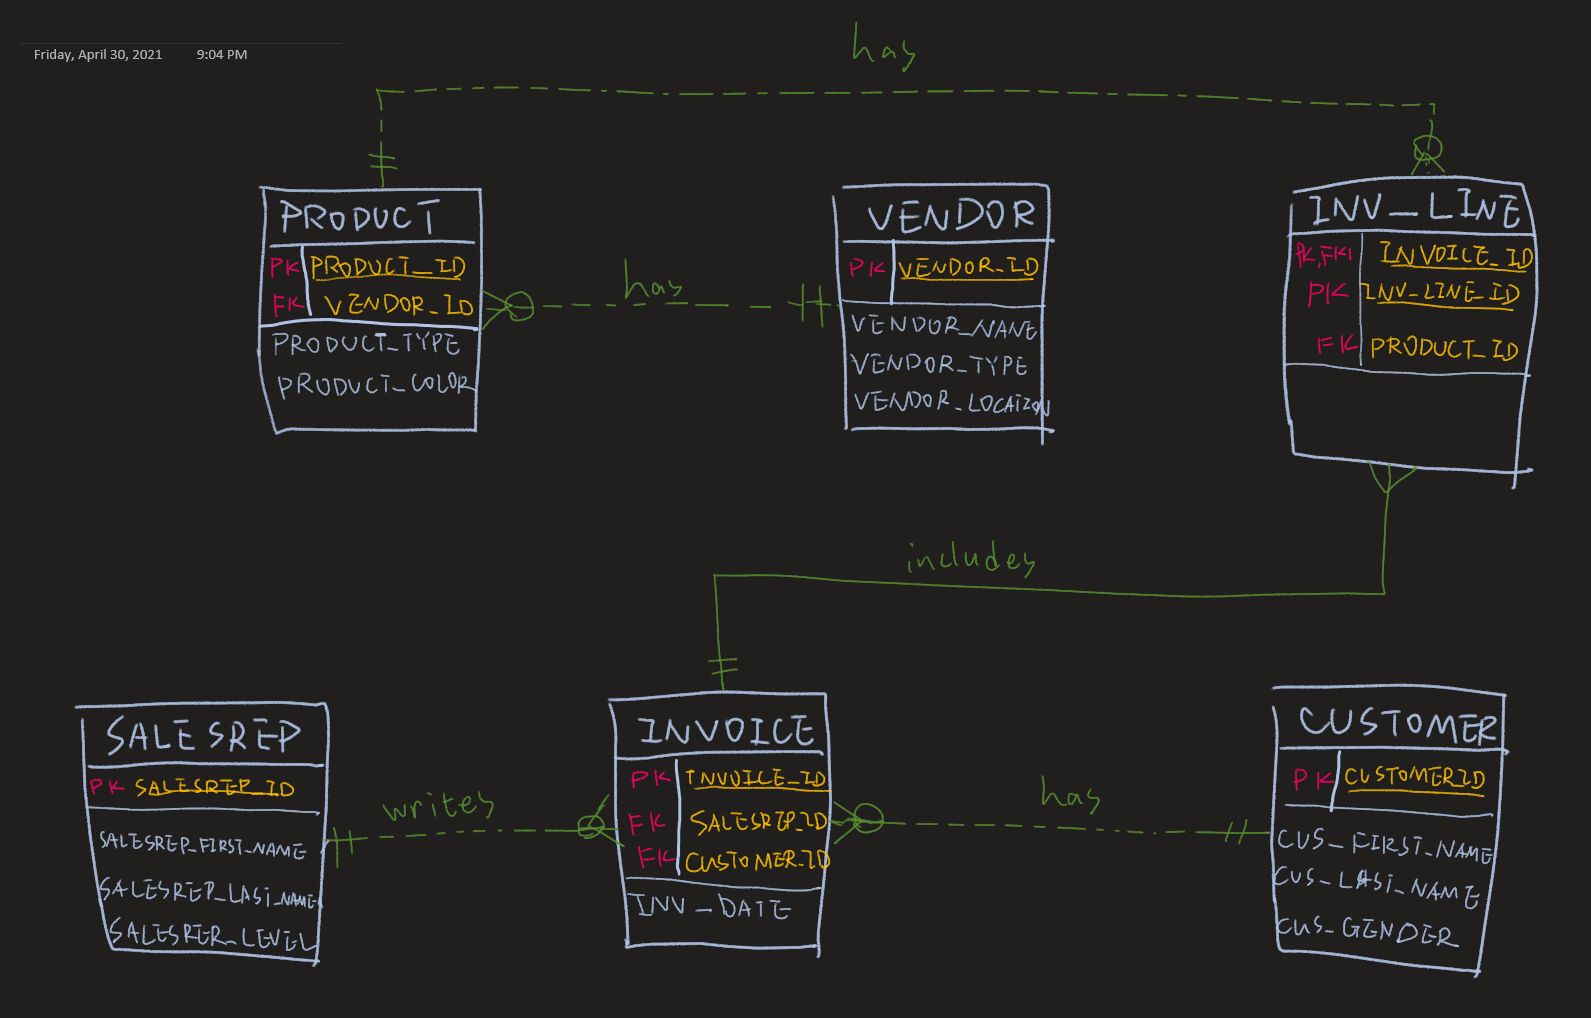 Friday, April 30, 2021 9:04 PM
has
PRODUCT
PK PRODUCT_ID
FK VENDOR_ID
PRODUCT_TYPE
PRODUCT_COLOR
has
VENDOR
PK VENDOR_ID
VENDOR_NAME
VENDOR_TYPE
VENDOR_LOCAIION
INV_LINE
PK,FK1 INVOICE_ID
PK INV_LINE_ID
FK PRODUCT_ID
includes
SALESREP
PK SALESREP_ID
SALESREP_FIRST_NAME
SALESREP_LAST_NAME
SALESRER_LEVEL
writes
INVOICE
PK INVOICE_ID
FK SALESREP_ID
FK CUSTOMER_ID
INV_DATE
has
CUSTOMER
PK CUSTOMERID
CUS_FIRST_NAME
CUS_LAST_NAME
CUS_GENDER